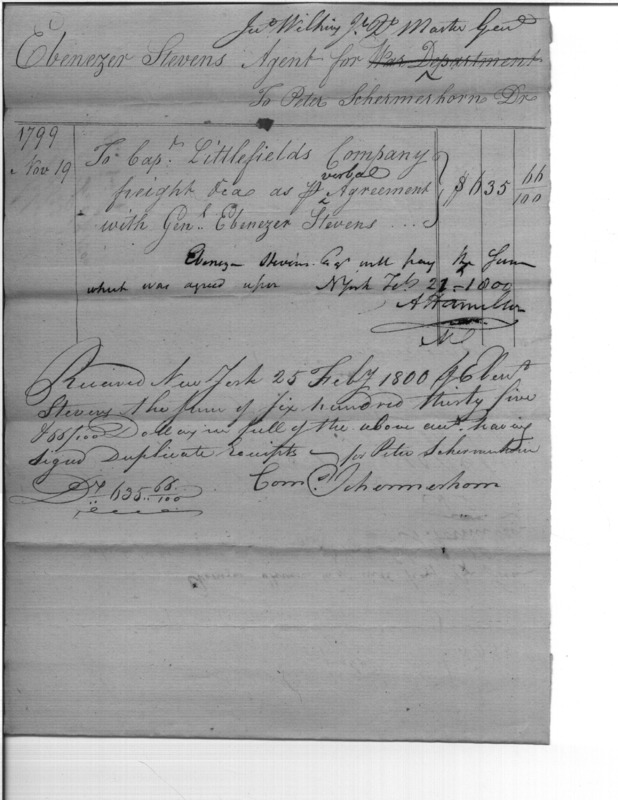 Jnº Wilkins Jr Qr Master Genl
Ebenezer Stevens Agent for War Department
To Peter Schermerhorn Dr
1799
Nov 19
To Capt. Littlefields Company
freight &ca as pr verbal Agreement
with Genl. Ebenezer Stevens ...
$ 635 66/100
Ebenezer Stevens Esqr will pay the Sum
which was agreed upon NYork Feb 21 - 1800
A Hamilton
MG
Recieved New York 25 Feby 1800 of Ebenr
Stevens the sum of six hundred thirty five
& 66/100 Dollars in full of the above acct. having
signed Duplicate Receipts - for Peter Schermerhorn
Drs 635 66/100
Corns Schermerhorn